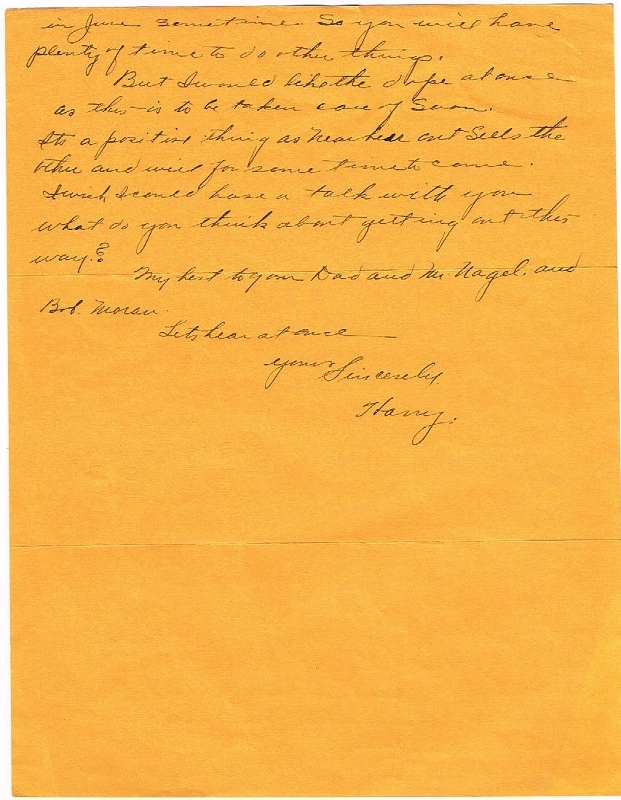 in June sometime. So you will have
plenty of time to do other things.
But I would like the dope at once
as this is to be taken care of Soon.
Its a positive thing as near beer out Sells the
other and will for some time to come.
I wish I could have a talk with you
what do you think about getting out this
way?
My best to your Dad and Mr. Nagel. and
Bob. Moran.
Lets hear at once
Yours Sincerely.
Harry.